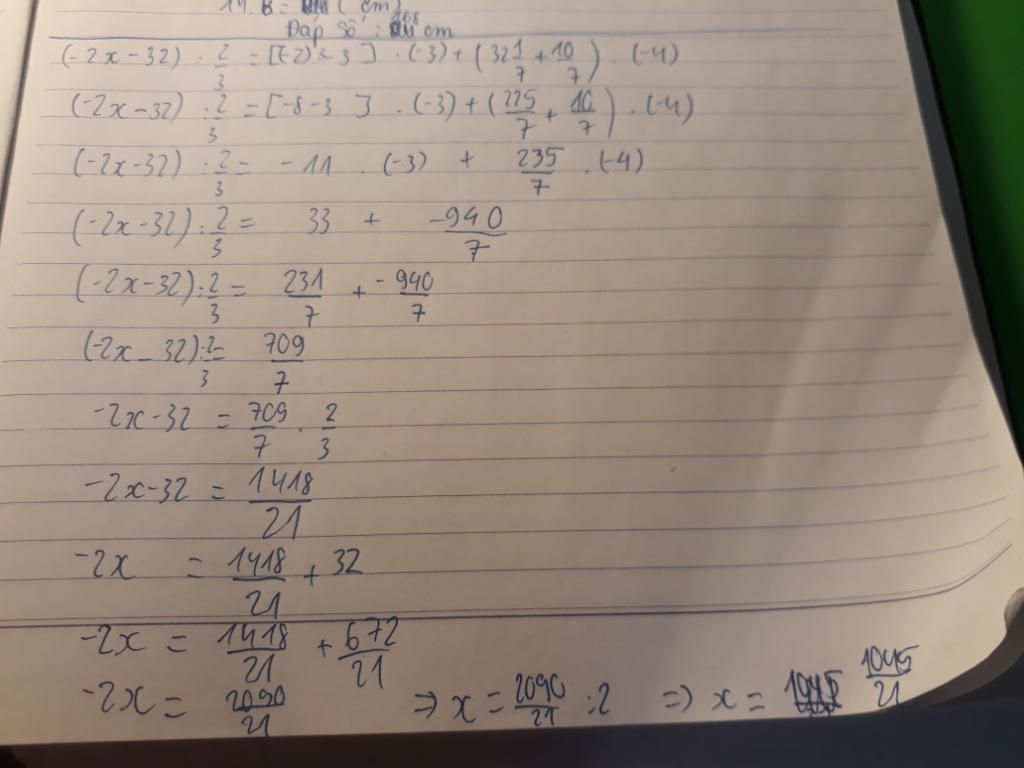 14. 8 = (cm)
Đáp Số : 168 cm
(-2x-32) : 2/3 = [(-2)³ - 3] . (-3) + (32 1/7 + 10/7) . (-4)
(-2x-32) : 2/3 = [-8-3] . (-3) + (225/7 + 10/7) . (-4)
(-2x-32) : 2/3 = -11 . (-3) + 235/7 . (-4)
(-2x-32) : 2/3 = 33 + -940/7
(-2x-32) : 2/3 = 231/7 + -940/7
(-2x-32) : 2/3 = 709/7
-2x-32 = 709/7 . 2/3
-2x-32 = 1418/21
-2x = 1418/21 + 32
-2x = 1418/21 + 672/21
-2x = 2090/21 ⇒ x = 2090/21 : 2 ⇒ x = 1045/21